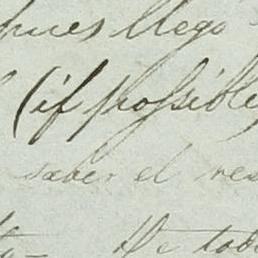 pues llego
(if possible
saber el res
De tod